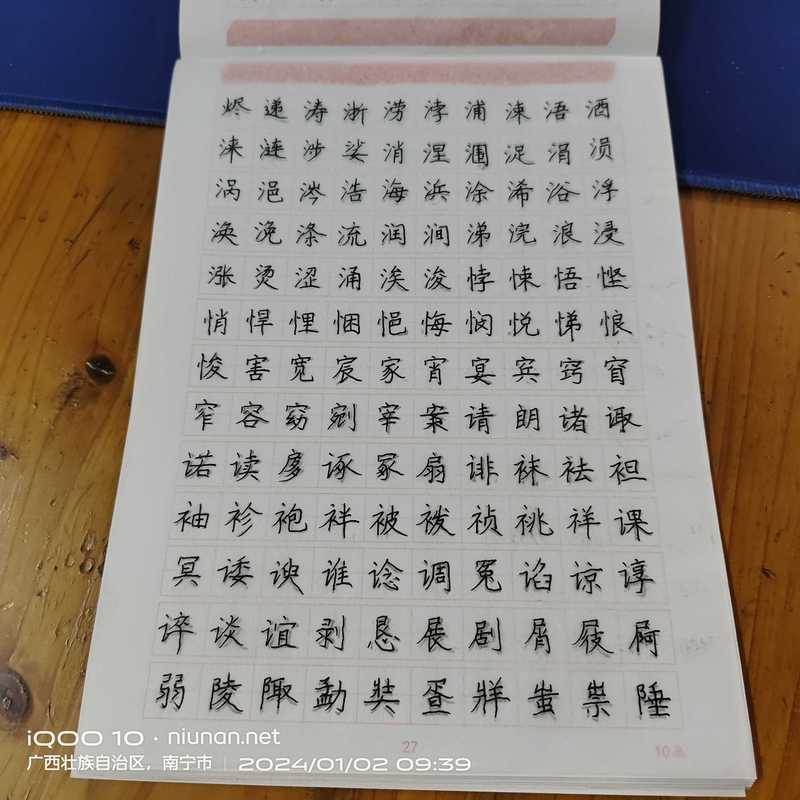 烬递涛浙涝浡浦涑浯酒
涞涟涉娑消涅浬浞涓涢
涡浥涔浩海浜涂浠浴浮
涣浼涤流润涧涕浣浪浸
涨烫涩涌涘浚悖悚悟悭
悄悍悝悃悒悔悯悦悌悢
悛害宽宸家宵宴宾窍窅
窄容窈剜宰案请朗诸诹
诺读扅诼冢扇诽袜祛袒
袖袗袍袢被袯祯祧祥课
冥诿谀谁谂调冤谄谅谆
谇谈谊剥恳展剧屑屐屙
弱陵陬勐奘疍牂蚩祟陲
27
10画
iQOO 10 · niunan.net
广西壮族自治区，南宁市 | 2024/01/02 09:39